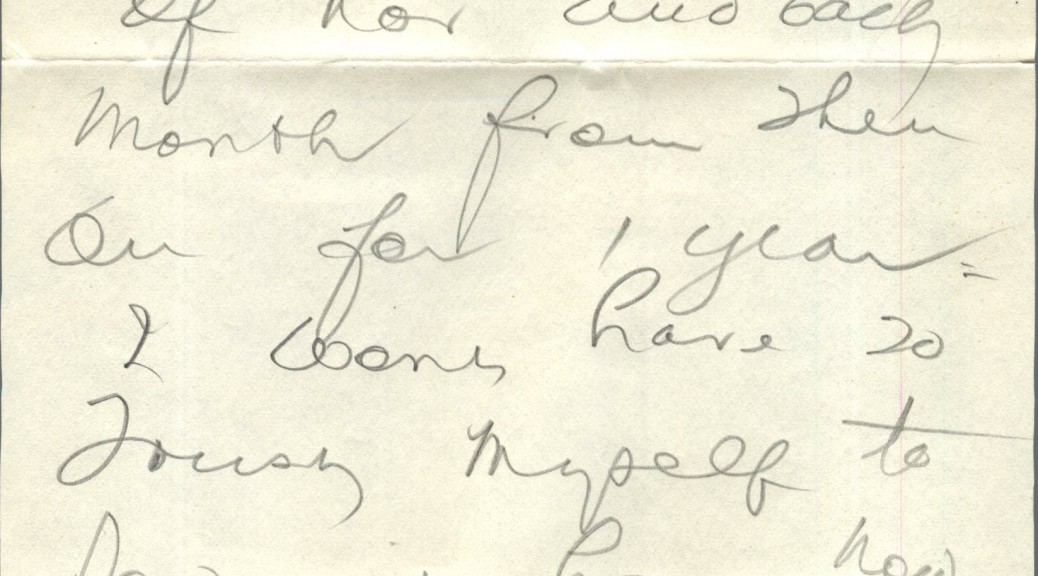 of Nov and each
Month from then
On for 1 year =
I wont have to
Trust Myself to
how